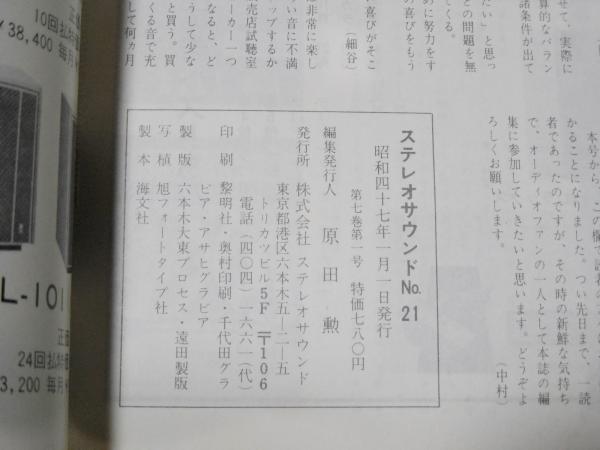 せて、実際に
算的なバラン
諸条件が出て
たい」と思っ
どの問題を無
てくる。
めに努力をす
の喜びをもう
に喜びがそこ
(細谷)
非常に楽し
い音に不満
ップするか
売店試聴室
ーカー一つ
なると、ど
うして少な
と買う。買
くる音で充
して何ヵ月
本号から、この欄で読者の
かることになりました。つい先日まで、一読
者であったのですが、その時の新鮮な気持ち
で、オーディオファンの一人として本誌の編
集に参加していきたいと思います。どうぞよ
ろしくお願いします。
(中村)
ステレオサウンド No. 21
昭和四十七年一月一日発行
第七巻第一号 特価七八〇円
編集発行人 原田 勲
発行所 株式会社 ステレオサウンド
東京都港区六本木五―二―五
トリカツビル5F 〒106
電話(四〇四)一六六一(代)
印刷 黎明社・奥村印刷・千代田グラ
ビア・アサヒグラビア
製版 六本木大東プロセス・遠田製版
写植 旭フォートタイプ社
製本 海文社
10回払
38,400 毎月
L-101
正価
24回払特価
3,200 毎月